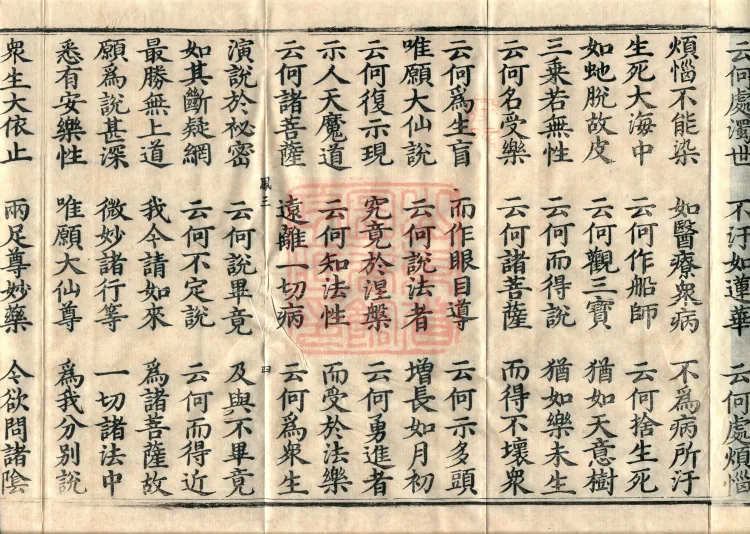 云何處濁世 不汙如蓮華 云何處煩惱
煩惱不能染 如醫療衆病 不爲病所汙
生死大海中 云何作船師 云何捨生死
如虵脫故皮 云何觀三寶 猶如天意樹
三乘若無性 云何而得說 猶如樂未生
云何名受樂 云何諸菩薩 而得不壞衆
云何爲生盲 而作眼目導 云何示多頭
唯願大仙說 云何說法者 增長如月初
云何復示現 究竟於涅槃 云何勇進者
示人天魔道 云何知法性 而受於法樂
云何諸菩薩 遠離一切病 云何爲衆生
鳳三 四
演說於祕密 云何說畢竟 及與不畢竟
如其斷疑網 云何不定說 云何而得近
最勝無上道 我今請如來 爲諸菩薩故
願爲說甚深 微妙諸行等 一切諸法中
悉有安樂性 唯願大仙尊 爲我分別說
衆生大依止 兩足尊妙藥 今欲問諸陰